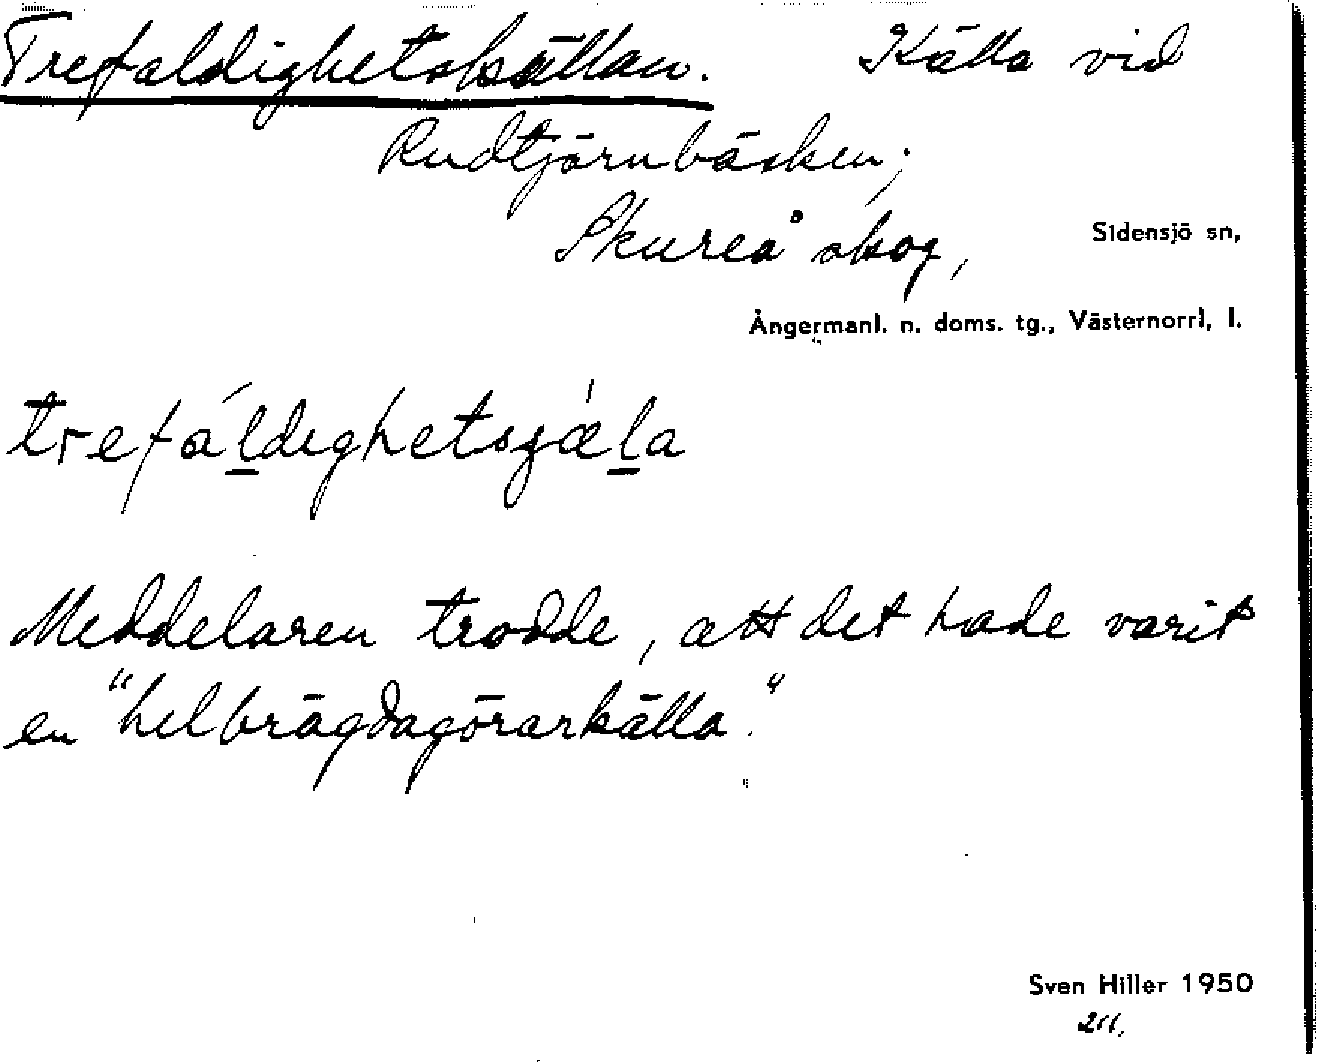 Trefaldighetskällan. Källa vid
Rudtjärnbäcken;
Skureå skog, Sidensjö sn,
Ångermanl. n. doms. tg., Västernorrl, l.
trefáldighetsjæ̀la
Meddelaren trodde, att det hade varit
en "helbrägdagörarkälla."
Sven Hiller 1950
211.